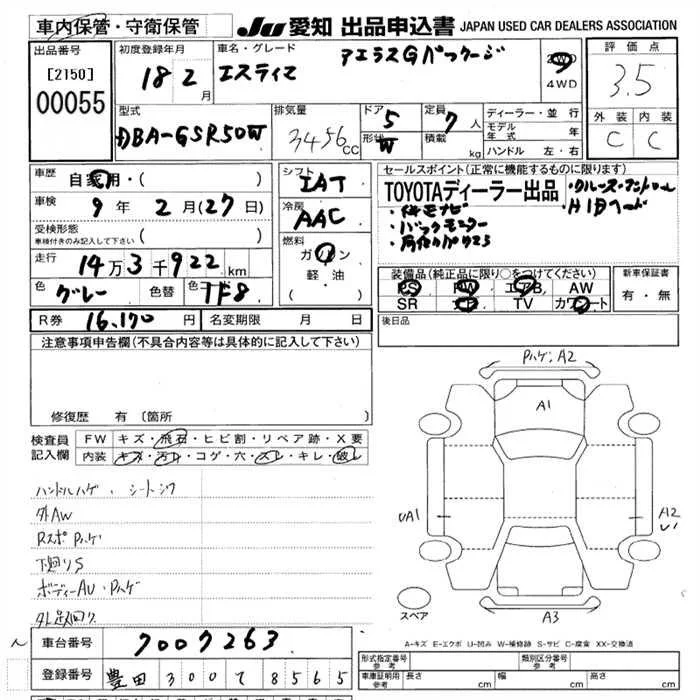 車内保管・守衛保管
JU 愛知 出品申込書 JAPAN USED CAR DEALERS ASSOCIATION
出品番号
[2150]
00055
初度登録年月
18 2 月
車名・グレード
エスティマ アエラスGパッケージ
2WD
4WD
評価点
3.5
外装 内装
C C
型式
DBA-GSR50W
排気量
3456 CC
ドア 5
形状 W
定員 7 人
積載 kg
ディーラー・並行
モデル年式 年
ハンドル 左・右
車歴 自家用・( )
車検 9 年 2 月 (27 日)
受検形態
車検付きのみ記入して下さい ( )
走行 14 万 3 千 922 km
色 グレー 色替 色コード 1F8
シフト IAT
冷房 AAC
燃料 ガソリン
軽・油
セールスポイント (正常に機能するものに限ります)
TOYOTAディーラー出品
・クルーズコントロール
・HIDヘッド
・バックモニター
装備品 (純正品に限り○をつけてください)
PS PW エアB. AW
SR TV カワシート
新車保証書
有・無
後日品
R券 16,170 円 名変期限 月 日
注意事項申告欄 (不具合内容等は具体的に記入して下さい)
修復歴 有 〔箇所
検査員
記入欄
FW キズ・飛石・ヒビ割・リペア跡・X要
内装 キズ・汚れ・コゲ・穴・スレ・キレ・破レ
ハンドルハゲ、シートシワ
外AW
RスポPハゲ
下廻りS
ボディーAU・Pハゲ
Pハゲ A2
A1
UA1
A2
U1
A3
スペア
A-キズ E-エクボ U-凹み W-補修跡 S-サビ C-腐食 XX-交換済
車台番号 7007263
登録番号 豊田 300 8565
形式指定番号
参考
類別区分番号
参考
車庫証明用
参考
長さ cm 幅 cm 高さ cm